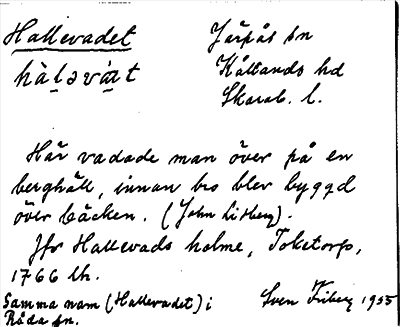 Hallevadet
Järpås sn
hàḷəvá̤t
Kållands hd
Skarab. l.
Här vadade man över på en
berghäll, innan bro blev byggd
över bäcken. (John Lidberg).
Jfr Hallevads holme, Toketorp,
1766 lh.
Samma namn (Hallevadet) i
Råda sn.
Sven Friberg 1955